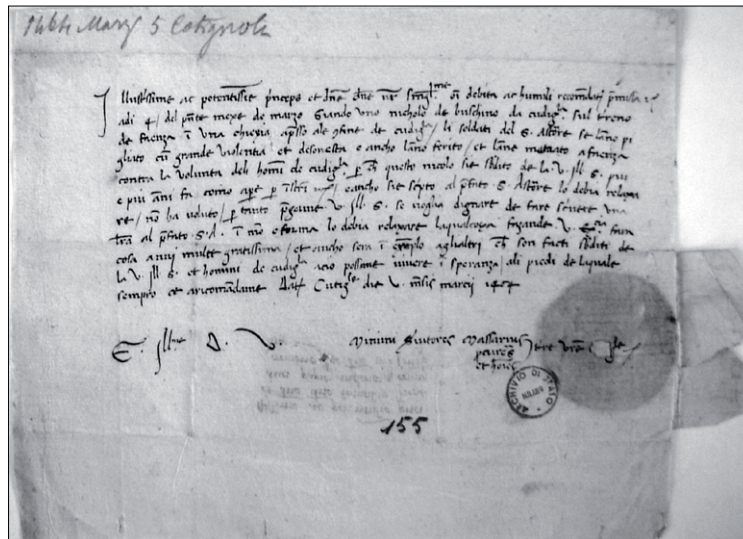 Marzo 5 Cotignola
Illustrissime ac potentissie princeps et dne dne nr debita ac humili
adi 4 / del pnte mexe de marzo Siando uno nicholo de buschino da cudig. sul treno
de faenza i una chiexia apsso ale gfine de cudig. / li soldati del S. Astore se lano pi
gliato cu grande violentia et desonesta e ancho lano ferito / et lane menato a faenza
contra la volunta deli homi de cudig. p ch questo nicolo sie sbdito de la V. Ill. S. piu
e piu ani fa como apr p / e ancho sie scpto al pfato S. Astore lo debia relaxa
re / no ha voluto / p tanto pgamue V. Ill. S. se voglia dignare de fare scrivere una
lra al pfato S. A. i mo e forma lo debia relaxare laqualcoxa fazande V. fara
cosa a nui multo gratissima / et ancho sera i exmplo aglialtri ch son facti sbditi de
la V. Ill. S. et homini de cudig. acio possime vivere i speranza / ali piedi de laquale
sempro ce aricomadame Dat Cutig. die V. msis marcii 144
E. Ill. D. V. Minimi S'vitores Massarius
et hoies
ARCHIVIO DI STATO
MILANO
155